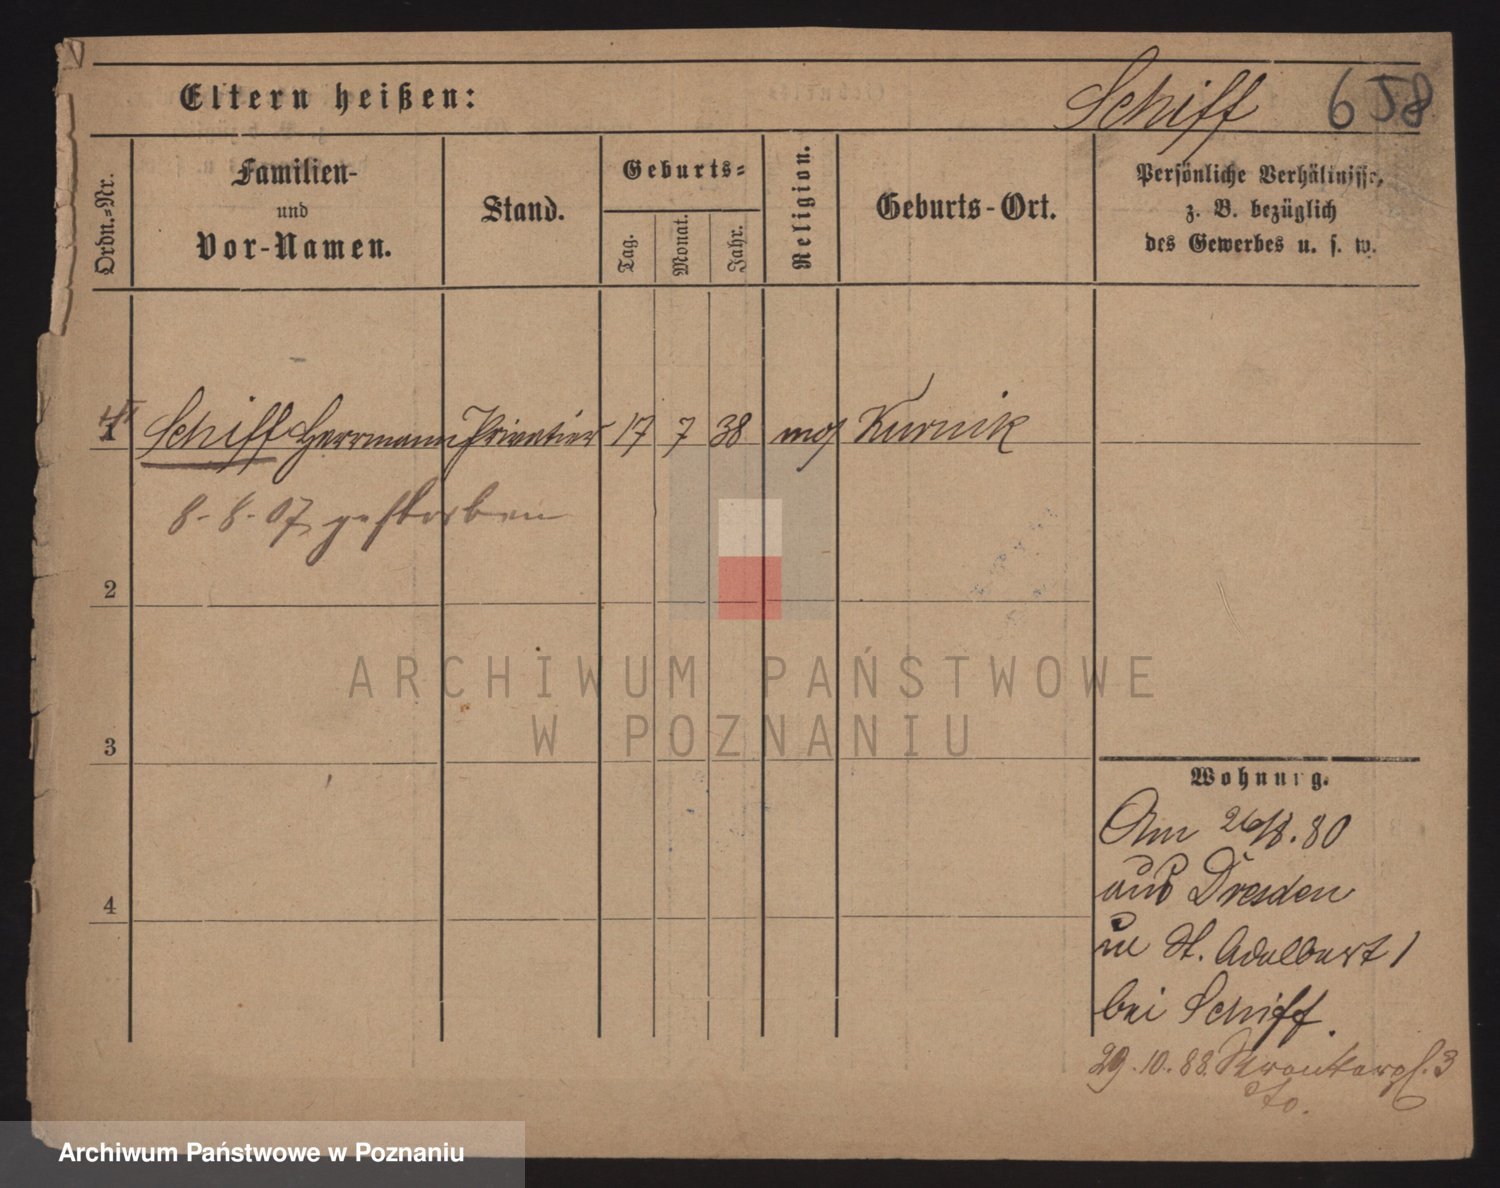 Eltern heißen: Schiff 658
Ordn.=Nr.
Familien-
und
Vor-Namen.
Stand.
Geburts=
Tag.
Monat.
Jahr.
Religion.
Geburts-Ort.
Persönliche Verhältnisse,
z. B. bezüglich
des Gewerbes u. s. w.
1 Schiff Herrmann Privatier 17 7 38 mos Kurnik
8-8-07 gestorben
2
3
4
ARCHIWUM PAŃSTWOWE
W POZNANIU
Wohnung.
Am 26/8.80
aus Dresden
in St. Adalbert 1
bei Schiff.
29.10.88. 3
Archiwum Państwowe w Poznaniu